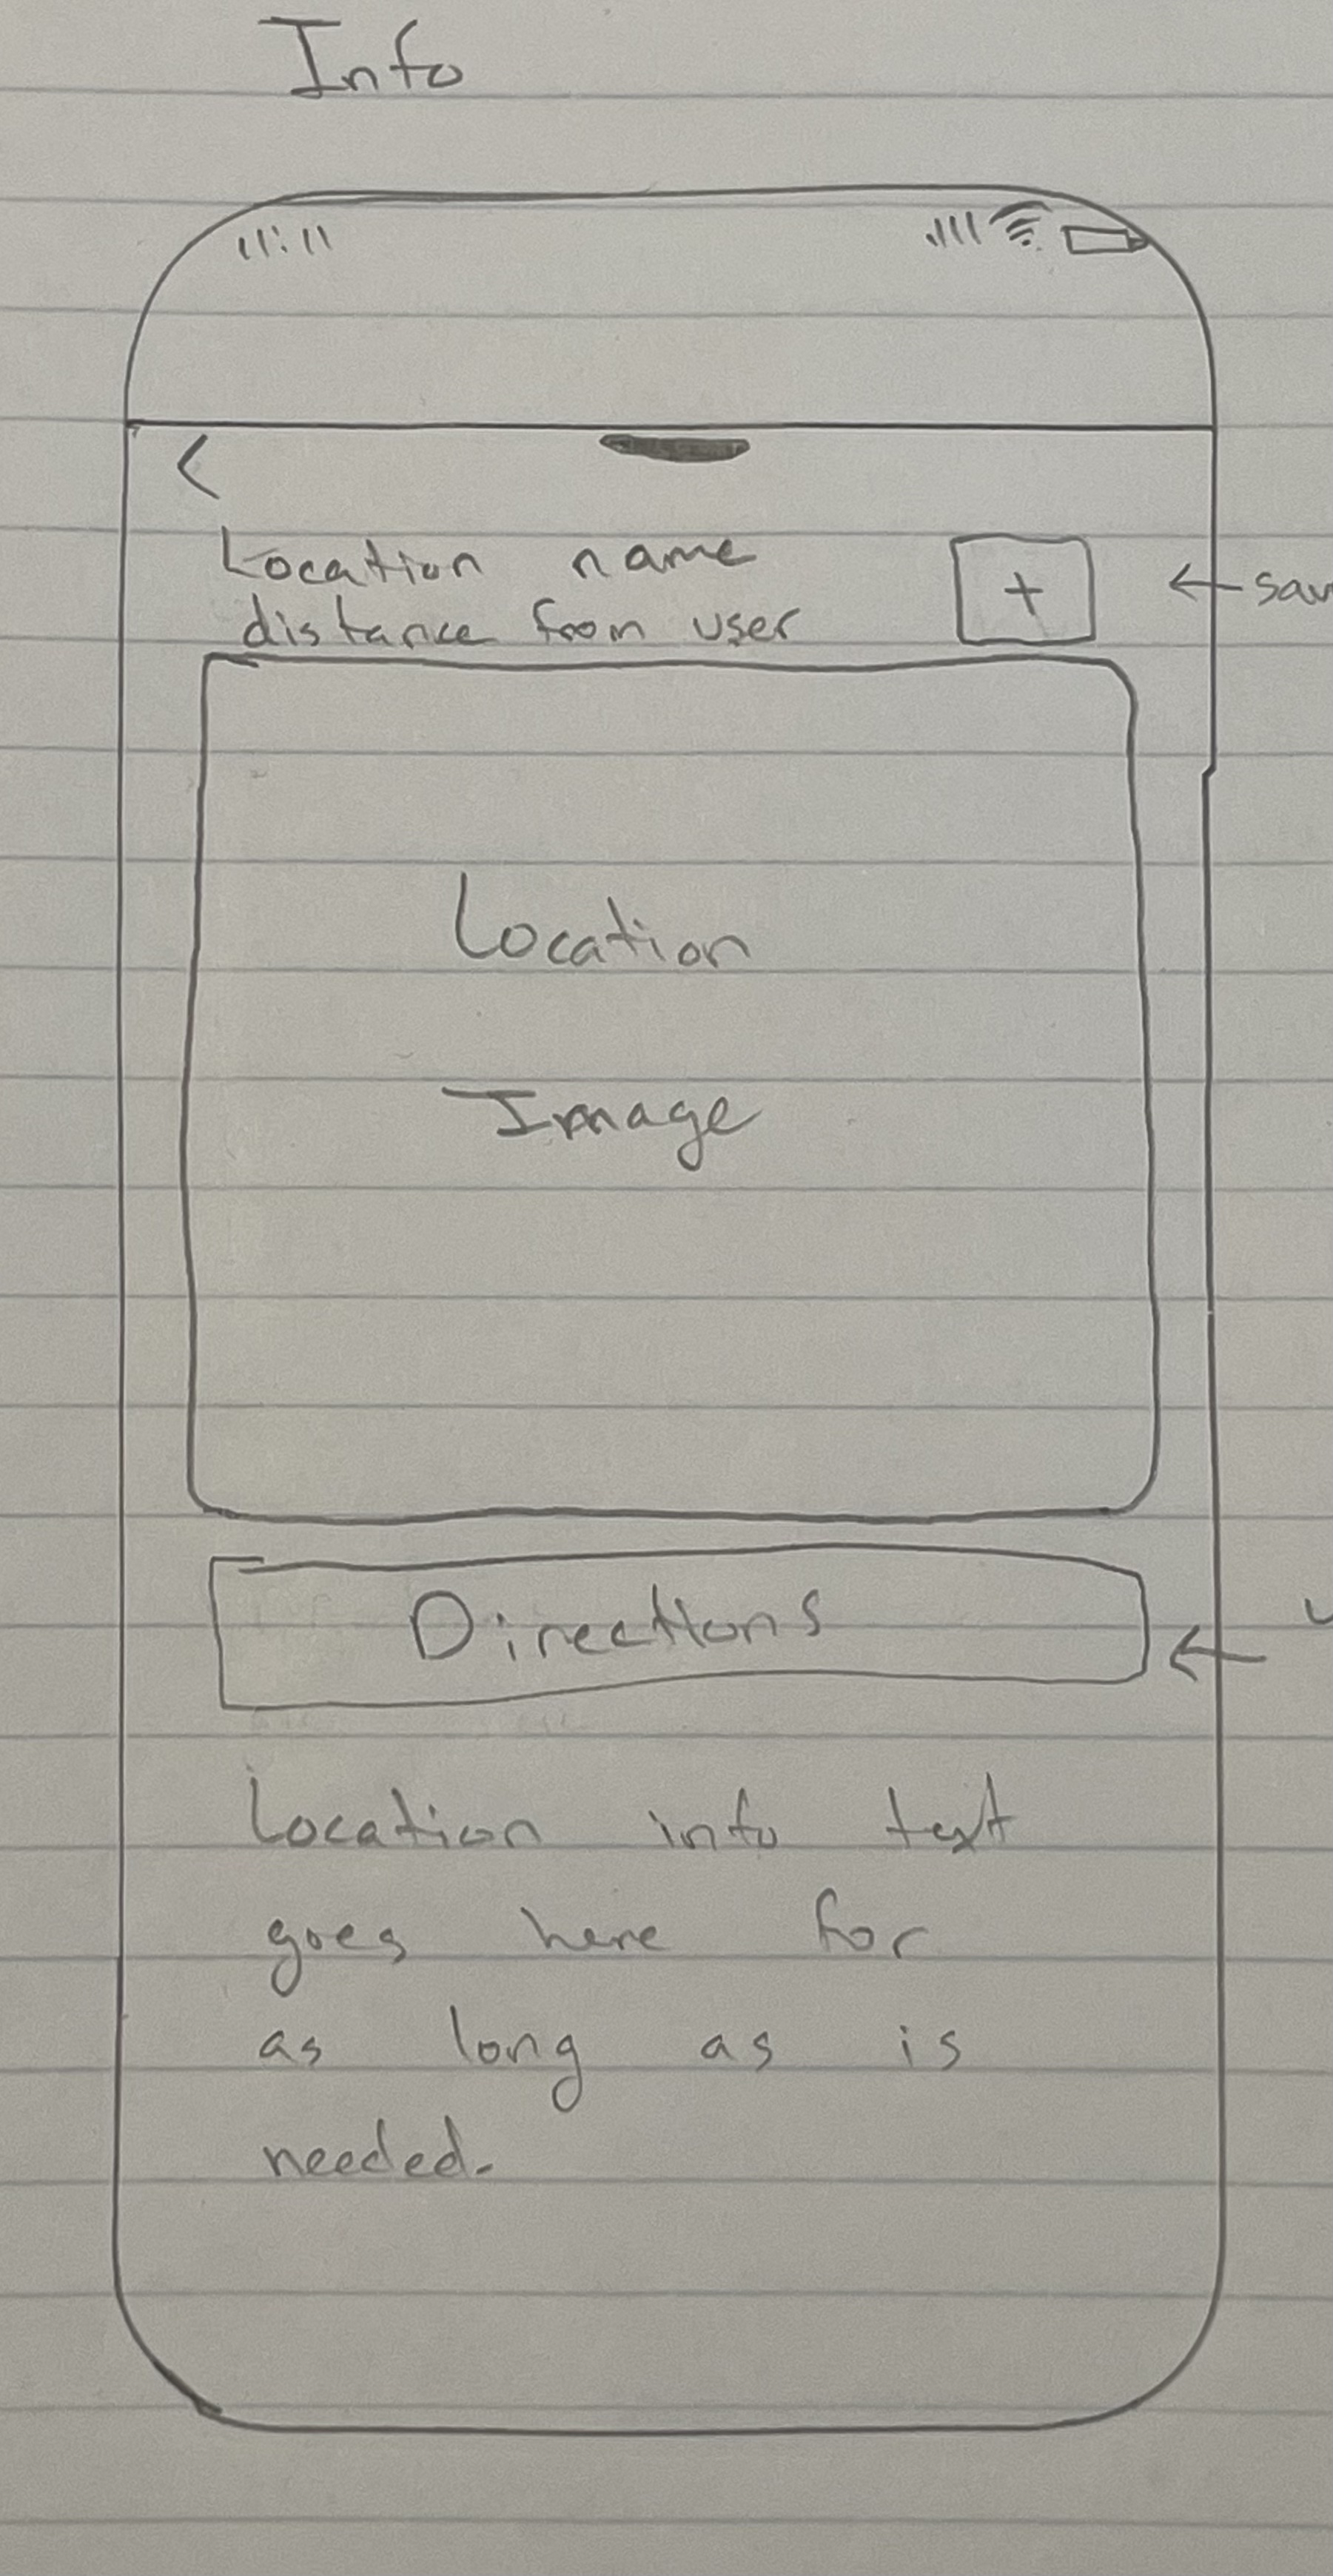 Info
11:11
<
Location name
distance from user
+
Location
Image
Directions
Location info text
goes here for
as long as is
needed.